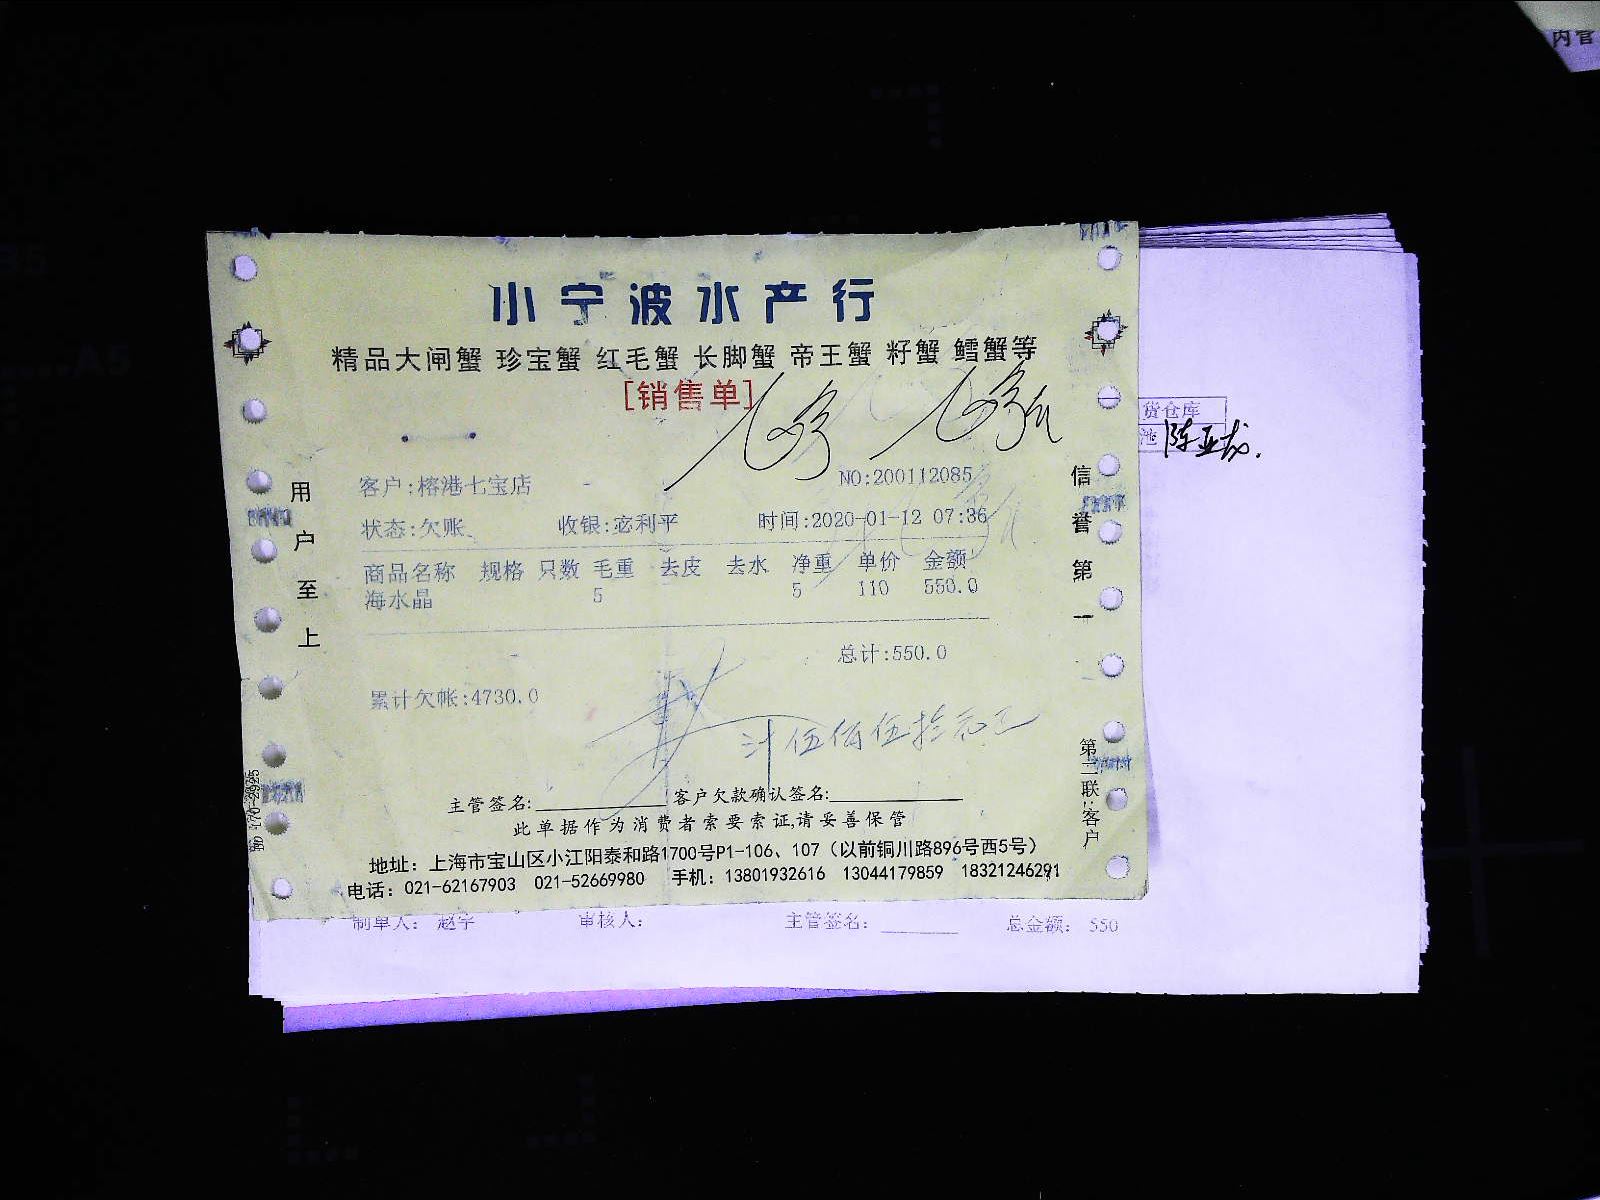 内管
小宁波水产行
精品大闸蟹 珍宝蟹 红毛蟹 长脚蟹 帝王蟹 籽蟹 鳕蟹等
[销售单]
货仓库
池 陈亚龙.
客户:榕港七宝店 NO:200112085
状态:欠账 收银:宓利平 时间:2020-01-12 07:36
商品名称 规格 只数 毛重 去皮 去水 净重 单价 金额
海水晶 5 5 110 550.0
总计:550.0
累计欠帐:4730.0
计伍佰伍拾元正
主管签名: 客户欠款确认签名:
此单据作为消费者索要索证,请妥善保管
地址：上海市宝山区小江阳泰和路1700号P1-106、107（以前铜川路896号西5号）
电话：021-62167903 021-52669980 手机：13801932616 13044179859 18321246291
用户至上
信誉第一
第二联:客户
制单人： 赵宇 审核人： 主管签名： 总金额： 550